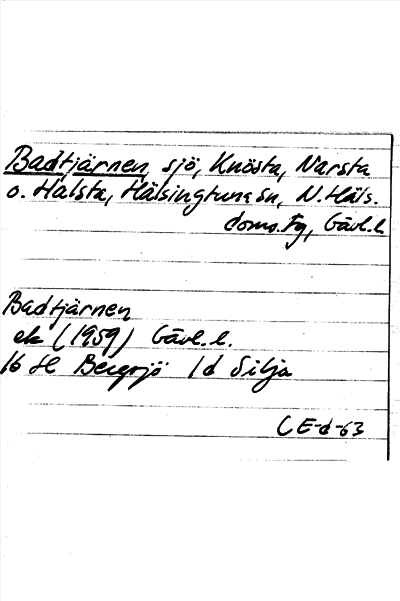 Badtjärnen, sjö, Knösta, Narsta
o. Halsta, Hälsingtuna sn, N. Häls.
doms. fg, Gävl. l
Badtjärnen
ek (1959) Gävl. l.
16 H Bergsjö 1 d Silja
CE-d-63